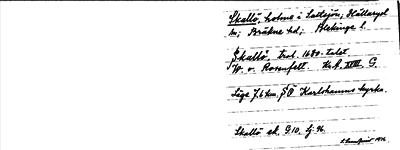 Skallö, holme i Lallsjön, Hällaryd
sn; Bräkne hd; Blekinge l.
Skallö, trol. 1680-talet
W. v. Rosenfelt. Krf. XVIII G.
Läge 7.6 km. SÖ Karlshamns kyrka.
Skallö ek. G10. Sj. 96.